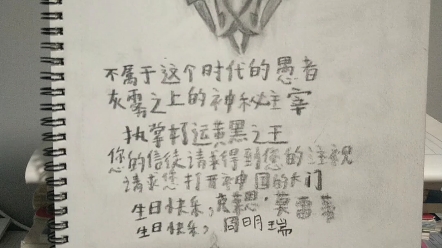 不属于这个时代的愚者
灰雾之上的神秘主宰
执掌好运黄黑之王
您的信徒请求得到您的注视
请求您打开神国的大门
生日快乐，克莱恩·莫雷蒂
生日快乐，周明瑞